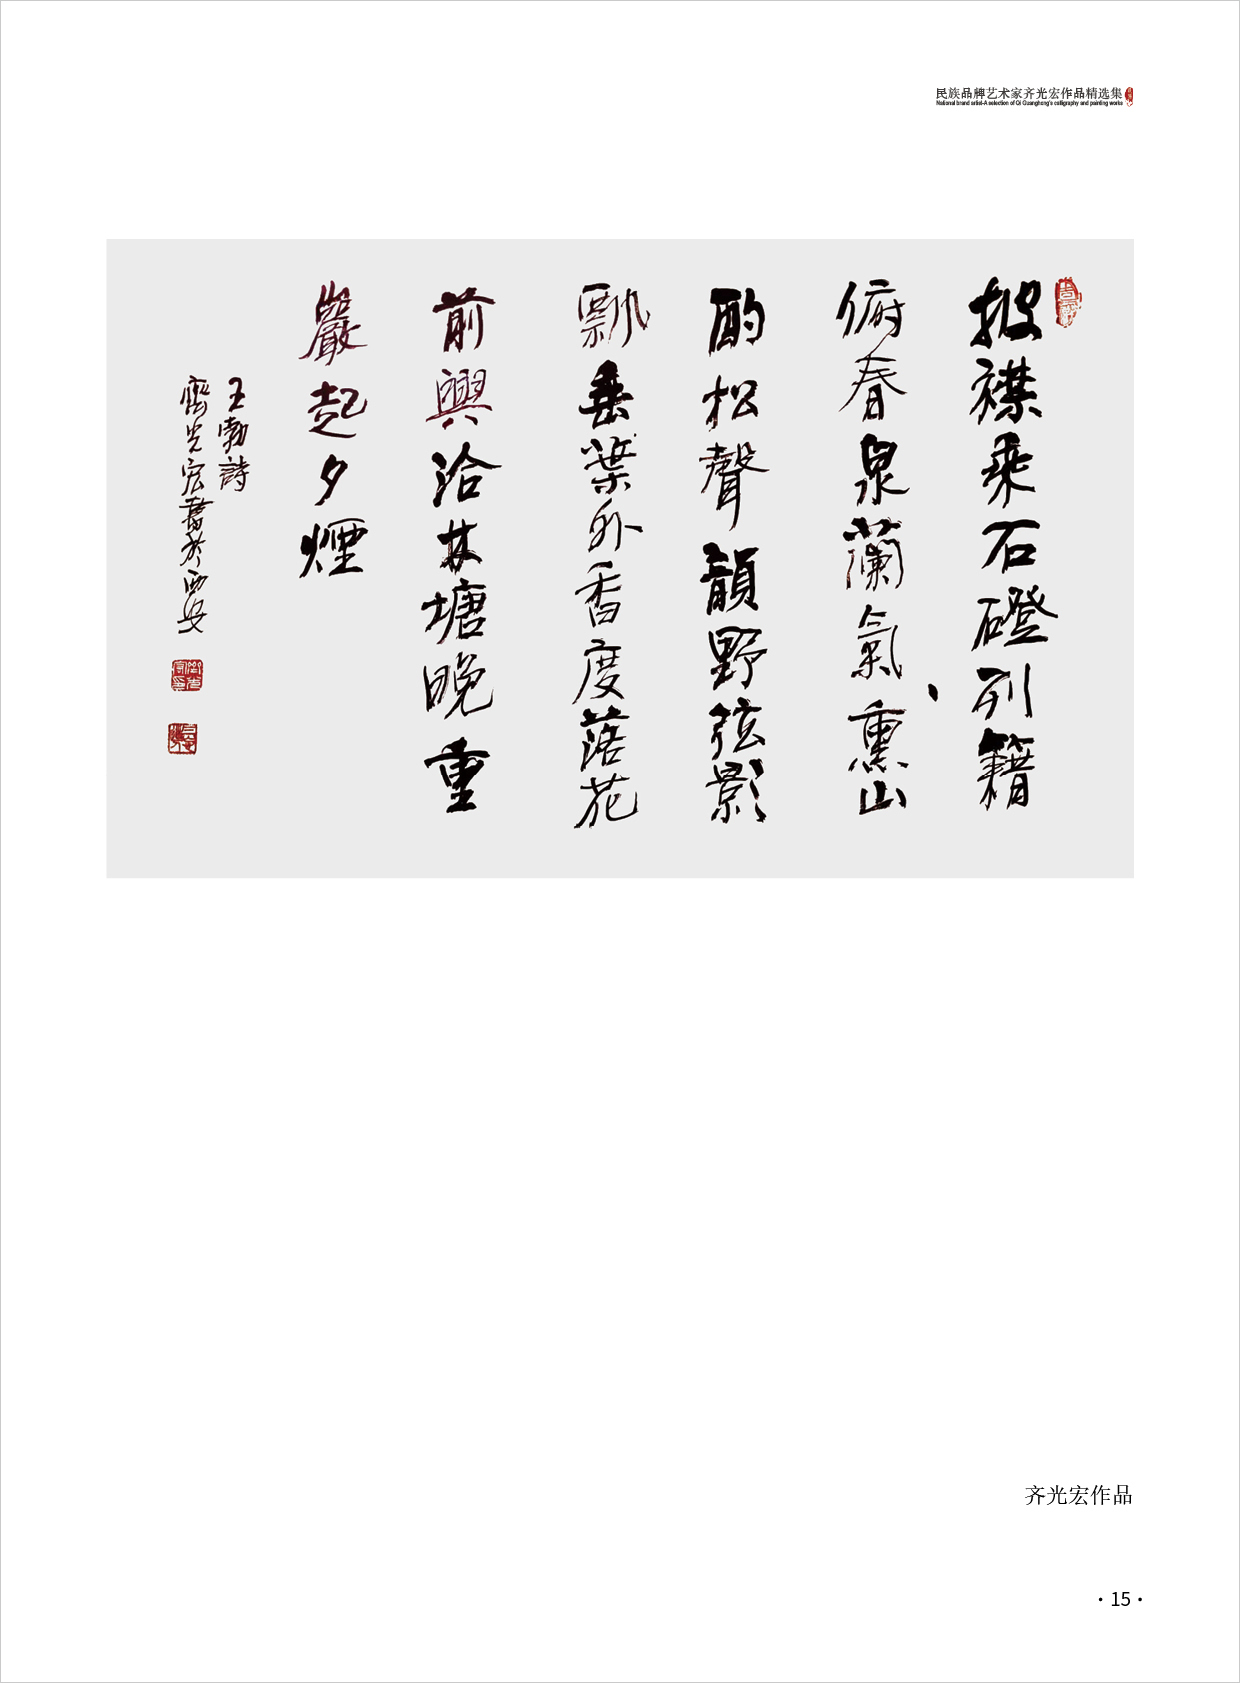 民族品牌艺术家齐光宏作品精选集
National brand artist-A selection of Qi Guanghong's calligraphy and painting works
披襟乘石磴列籍
俯春泉蘭氣熏山
酌松聲韻野弦影
飄垂葉外香度落花
前興洽林塘晚重
巖起夕煙
王勃詩
齊光宏書於西安
齐光宏作品
·15·